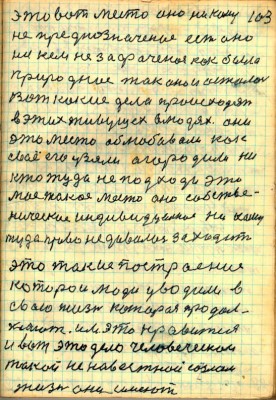 это вот место оно никому 103
не предпозначеное ест оно
ни кем не захраченое как была
природние так она и осталас
вот какие дела происходят
в этих живущех людях. они
это место облюбавали как
своё его узяли огородили ни
кто туда не подходи это
мае такое место оно собстве-
ническае индивидуалное ни каму
туда право недавалас заходит
это такие построение
которои люди уводили в
сваю жизн которая продал-
жяют. им это нравится
и вот это дело человеческои
такой не навестной создал
жизн они имеют